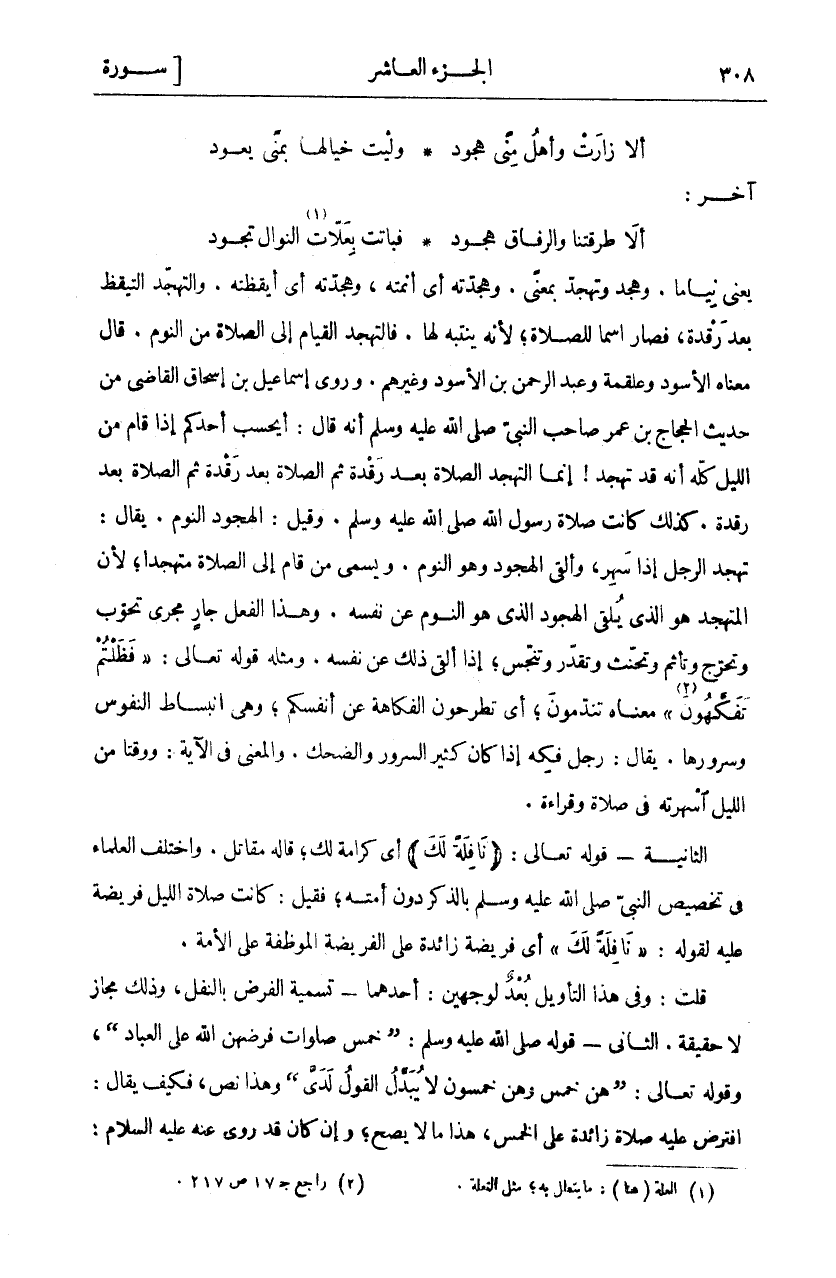 ٣٠٨ الجـزء العـاشر [ ســورة
ألا زارَتْ وأهلُ مِنًى هجود * ولَيْت خيالهـا بمنًى يعـود
آخـر :
ألَا طرقتنا والرفـاق هجـود * فباتت بِعَلّات (١) النوال تجـود
يعنى نِيـاما . وهجد وتهجد بمعنًى . وهجدته أى أنمته ، وهجدته أى أيقظته . والتهجّد التيقظ
بعد رَقْدة، فصار اسما للصـلاة؛ لأنه ينتبه لها . فالتهجد القيام إلى الصلاة من النوم . قال
معناه الأسود وعلقمة وعبد الرحمن بن الأسود وغيرهم . وروى إسماعيل بن إسحاق القاضى من
حديث الحجاج بن عمر صاحب النبىّ صلى الله عليه وسلم أنه قال : أيحسب أحدكم إذا قام من
الليل كلّه أنه قد تهجد ! إنمـا التهجد الصلاة بعـد رَقْدة ثم الصلاة بعد رَقْدة ثم الصلاة بعد
رقدة . كذلك كانت صلاة رسول الله صلى الله عليه وسلم . وقيل : الهجود النوم . يقال :
تهجد الرجل إذا سَهِر، وألقى الهجود وهو النوم . ويسمى من قام إلى الصلاة متهجدا؛ لأن
المتهجد هو الذى يُلقى الهجود الذى هو النـوم عن نفسه . وهـذا الفعل جارٍ مجرى تحوّب
وتحرّج وتأثم وتحنّث وتقذّر وتنجّس؛ إذا ألقى ذلك عن نفسه . ومثله قوله تعـالى : « فَظَلْتُمْ
تَفَكَّهُونَ (٢) » معنـاه تندّمونَ؛ أى تطرحون الفكاهة عن أنفسكم ؛ وهى انبسـاط النفوس
وسرورها . يقال : رجل فَكِه إذا كان كثير السرور والضحك . والمعنى فى الآية : ووقتا من
الليل ٱسْهرته فى صلاة وقراءة .
الثانيــة — قوله تعـالى : (نَافِلَةً لَكَ) أى كرامة لك؛ قاله مقاتل . واختلف العلماء
فى تخصيص النبىّ صلى الله عليه وسـلم بالذكر دون أمتـه؛ فقيل : كانت صلاة الليل فريضة
عليه لقوله : « نَافِلَةً لَكَ » أى فريضة زائدة على الفريضة الموظفة على الأمة .
قلت : وفى هذا التأويل بُعْدٌ لوجهين : أحدهما — تسمية الفرض بالنفل، وذلك مجاز
لا حقيقة . الثـانى — قوله صلى الله عليه وسلم : ” خمس صلوات فرضهن الله على العباد “ ،
وقوله تعـالى : ” هن خمس وهن خمسون لا يُبَدَّلُ القولُ لَدَىَّ “ وهذا نص، فكيف يقال :
افترض عليه صلاة زائدة على الخمس، هذا ما لا يصح؛ وإن كان قد روى عنه عليه السلام :
(١) العلة (هنا) : ما يتعلل به؛ مثل التعلة . (٢) راجع جـ ١٧ ص ٢١٧ .